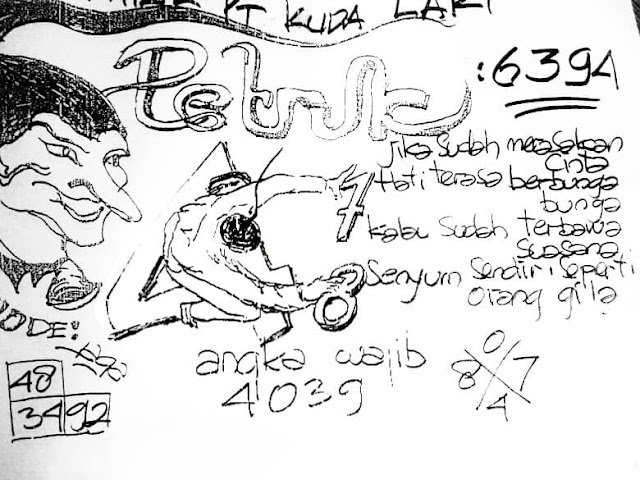 PT KUDA LARI
Petruk
: 6394
Jika Sudah merasakan
Cinta
Hati terasa berbunga
bunga
kalau Sudah terbawa
Suasana
Senyum Sendiri Seperti
orang gila
7
ODE:
48
34 92
angka wajib
4039
0
8 7
4